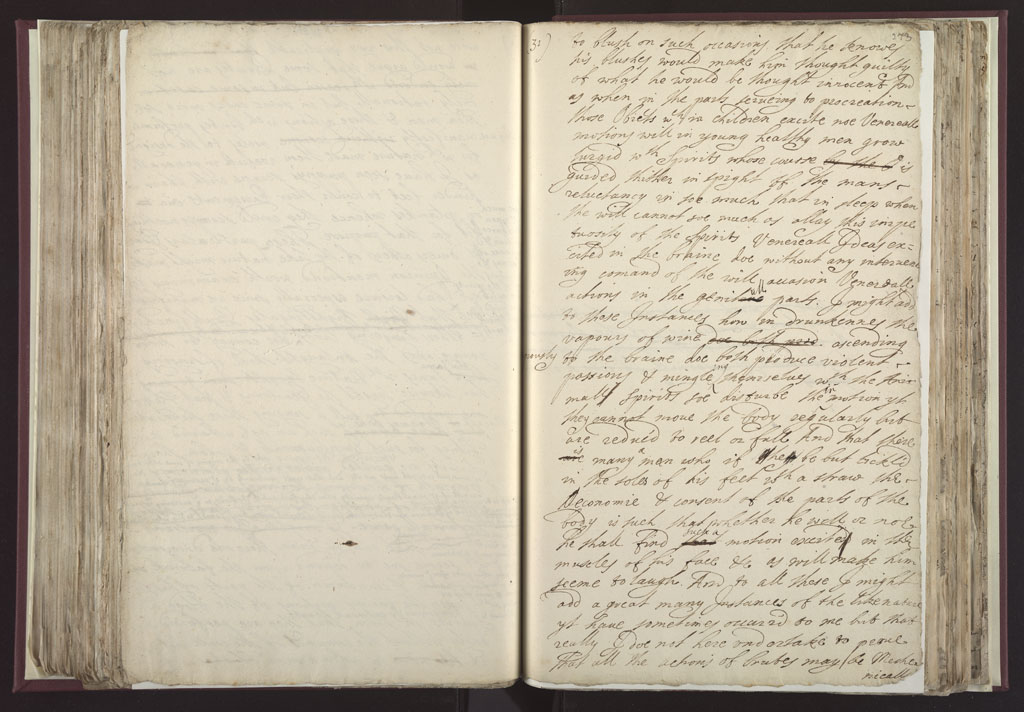 373
(31)
to blush on such occasions that he knowes
his blushes would make him thought guilty
of what he would be thought innocent And
as when in the parts serveing to procreation
those Obiects wch in children excite noe Venereall
motions will in young healthy men grow
turgid wth Spirits whose course by the is
guided thither in spight of the mans
reluctancy in soe much that in sleep when
the will cannot soe much as allay this impe
tuosity of the Spirits Venereall Ideas ex=
cited in the braine doe without any interveen
ing comand of the will occasion Venereall
actions in the genitall parts. I might add
to those Instances how in drunkennes the
vapours of wine ascending
to the braine doe both produce violent
passions & mingleing themselves wth the Ani
mall Spirits soe disturbe their motion yt
they cannot move the body regularly but
are reduc'd to reel or fall And that there
are many men who if they be but tickled
in the soles of his feet wth a straw the
Oeconomie & consent of the parts of the
body is such that whether he will or noe
he shall find such a motion excited in the
muscles of his face &c as will make him
seeme to laugh. And to all these I might
add a great many Instances of the like nature
yt have sometimes occured to me but that
really I doe not here undertake to prove
that all the actions of brutes may be Mecha
nicall